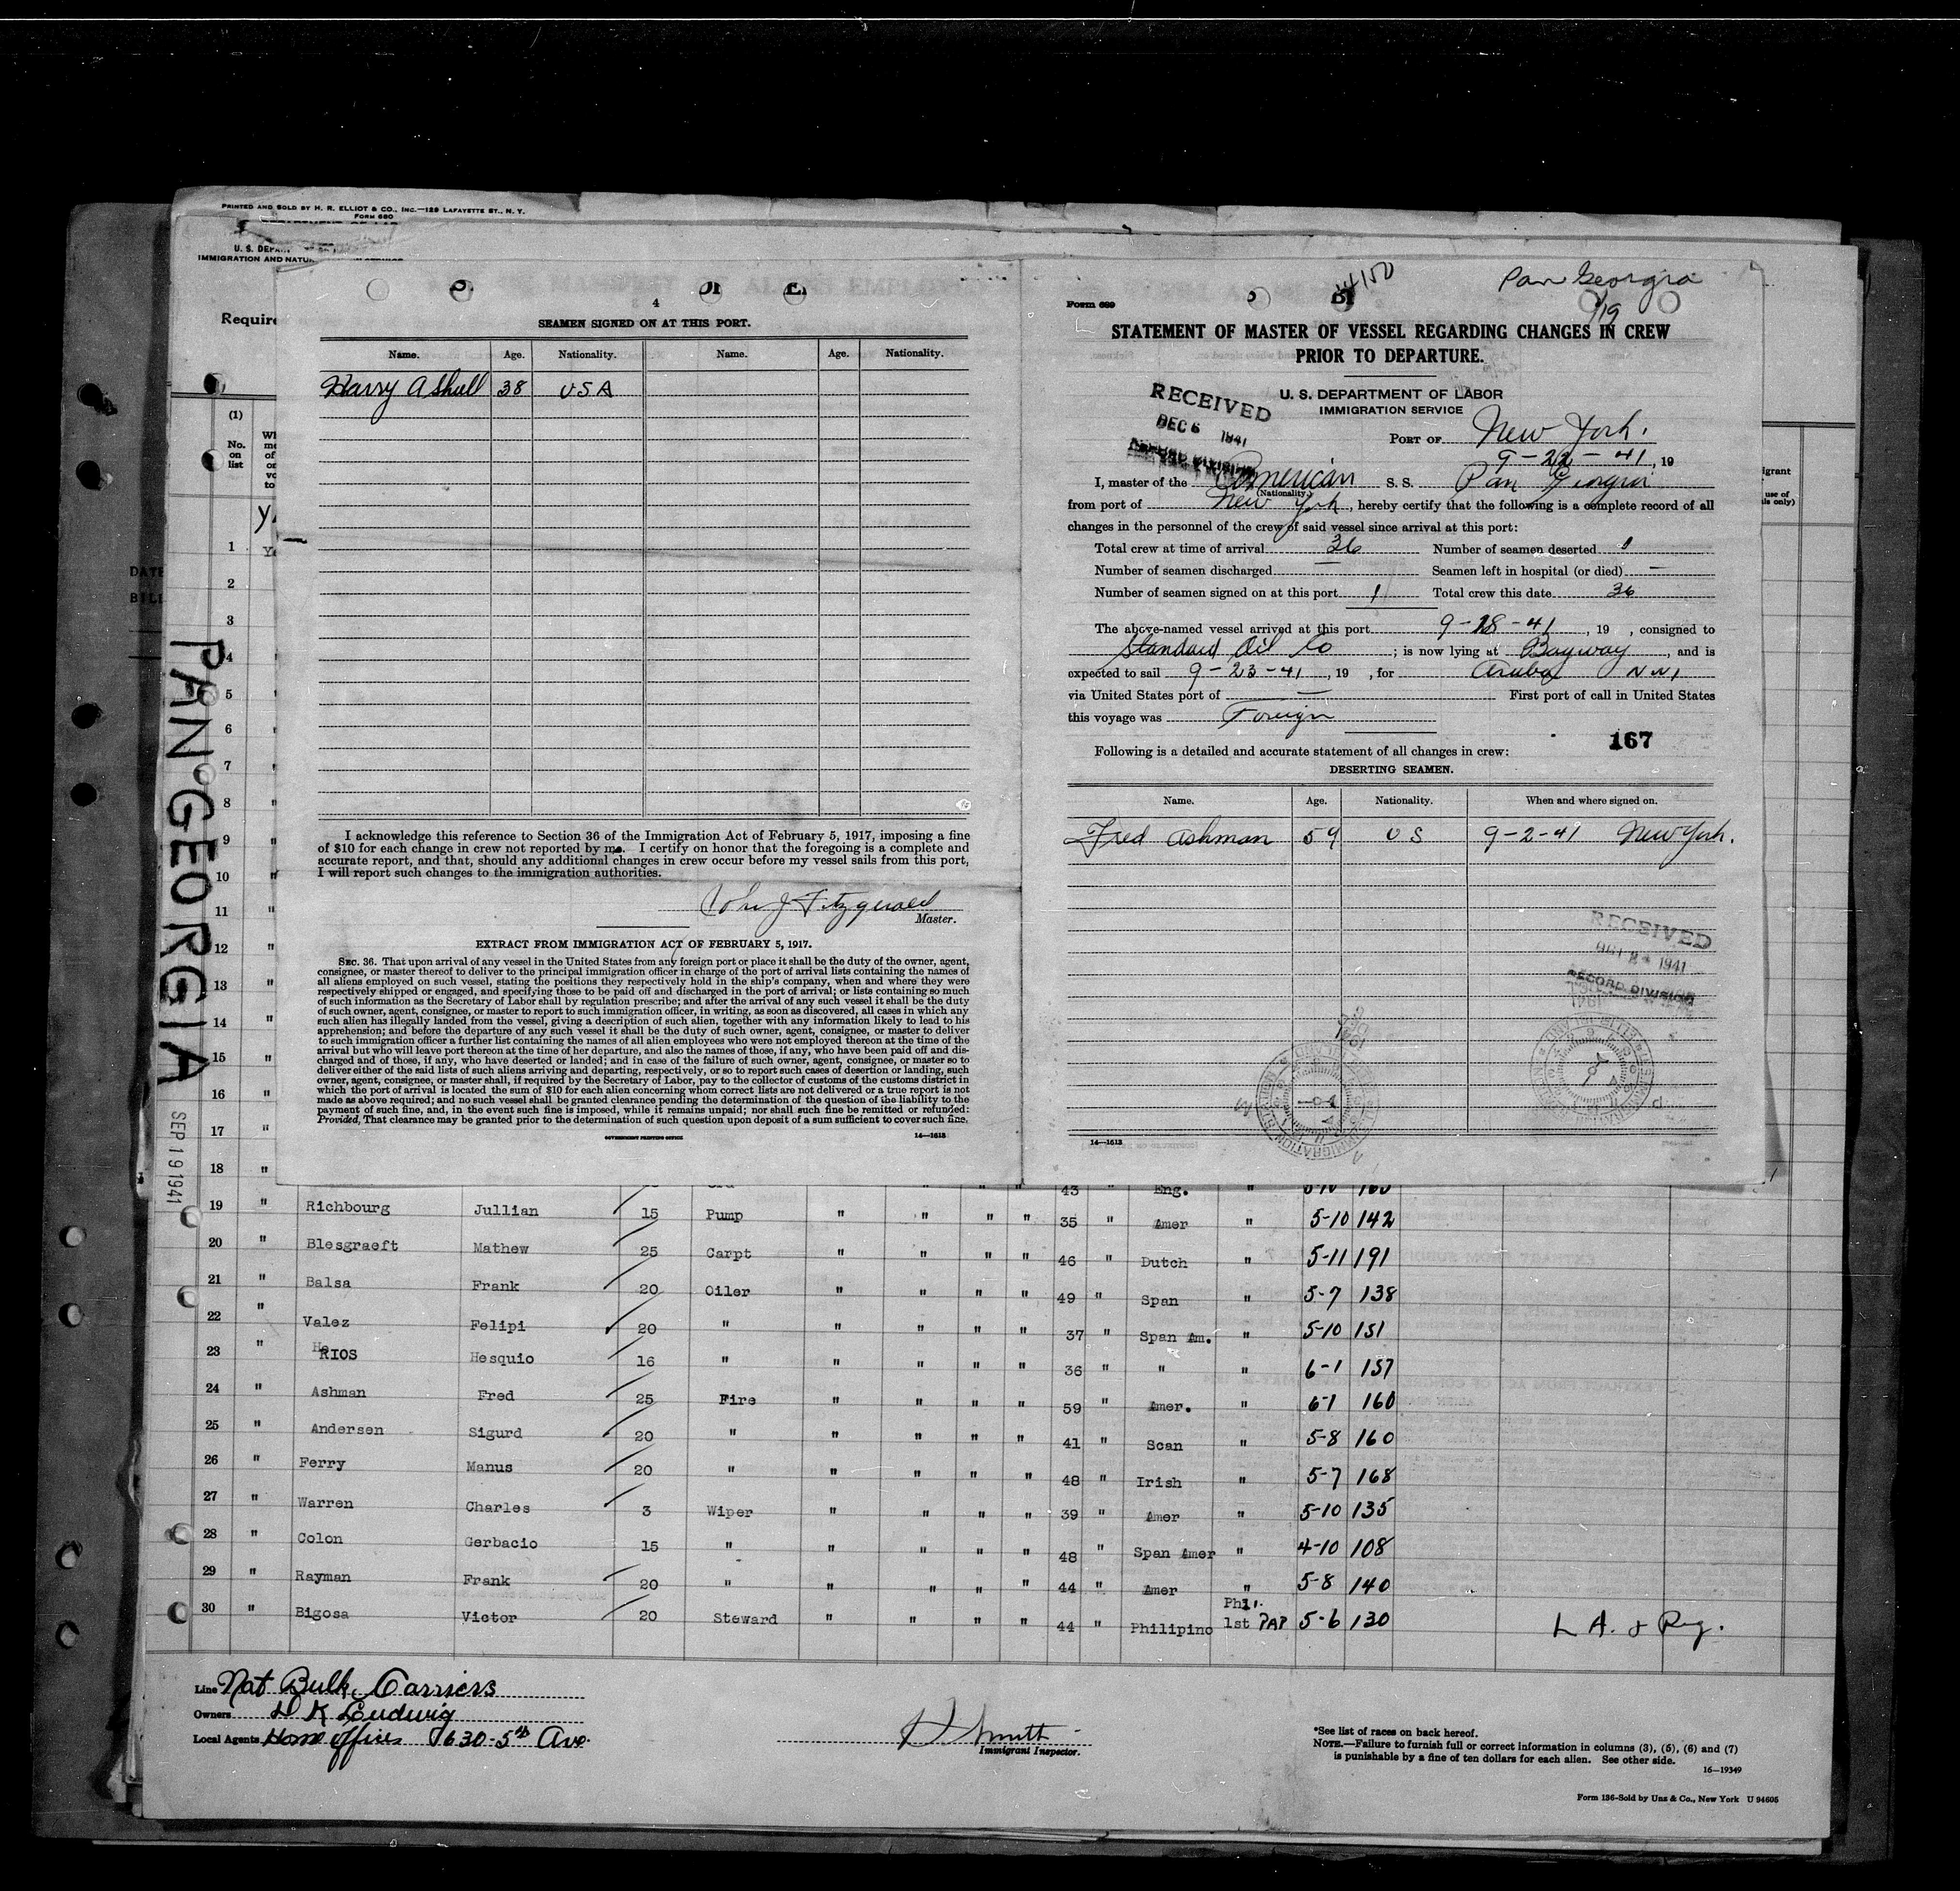 PRINTED AND SOLD BY H. R. ELLIOT & CO., INC.—129 LAFAYETTE ST., N. Y.
FORM 680
U. S. DEPA
IMMIGRATION AND NATU
Require
(1)
No. on list
DATE
BILL
PAN GEORGIA
SEP 19 1941
1
2
3
4
5
6
7
8
9
10
11
12
13
14
15
16
17
18
4
SEAMEN SIGNED ON AT THIS PORT.
Name. Age. Nationality. Name. Age. Nationality.
Harry A Shull 38 USA
I acknowledge this reference to Section 36 of the Immigration Act of February 5, 1917, imposing a fine
of $10 for each change in crew not reported by me. I certify on honor that the foregoing is a complete and
accurate report, and that, should any additional changes in crew occur before my vessel sails from this port,
I will report such changes to the immigration authorities.
John J Fitzgerald
Master.
EXTRACT FROM IMMIGRATION ACT OF FEBRUARY 5, 1917.
SEC. 36. That upon arrival of any vessel in the United States from any foreign port or place it shall be the duty of the owner, agent,
consignee, or master thereof to deliver to the principal immigration officer in charge of the port of arrival lists containing the names of
all aliens employed on such vessel, stating the positions they respectively hold in the ship's company, when and where they were
respectively shipped or engaged, and specifying those to be paid off and discharged in the port of arrival; or lists containing so much
of such information as the Secretary of Labor shall by regulation prescribe; and after the arrival of any such vessel it shall be the duty
of such owner, agent, consignee, or master to report to such immigration officer, in writing, as soon as discovered, all cases in which any
such alien has illegally landed from the vessel, giving a description of such alien, together with any information likely to lead to his
apprehension; and before the departure of any such vessel it shall be the duty of such owner, agent, consignee, or master to deliver
to such immigration officer a further list containing the names of all alien employees who were not employed thereon at the time of the
arrival but who will leave port thereon at the time of her departure, and also the names of those, if any, who have been paid off and dis-
charged and of those, if any, who have deserted or landed; and in case of the failure of such owner, agent, consignee, or master so to
deliver either of the said lists of such aliens arriving and departing, respectively, or so to report such cases of desertion or landing, such
owner, agent, consignee, or master shall, if required by the Secretary of Labor, pay to the collector of customs of the customs district in
which the port of arrival is located the sum of $10 for each alien concerning whom correct lists are not delivered or a true report is not
made as above required; and no such vessel shall be granted clearance pending the determination of the question of the liability to the
payment of such fine, and, in the event such fine is imposed, while it remains unpaid; nor shall such fine be remitted or refunded:
Provided, That clearance may be granted prior to the determination of such question upon deposit of a sum sufficient to cover such fine.
GOVERNMENT PRINTING OFFICE 14—1613
Pan Georgia
9/19
Form 689
STATEMENT OF MASTER OF VESSEL REGARDING CHANGES IN CREW
PRIOR TO DEPARTURE.
U. S. DEPARTMENT OF LABOR
IMMIGRATION SERVICE
RECEIVED
DEC 6 1941
RECORD DIVISION
PORT OF New York.
9-22-41, 19
I, master of the American S. S. Pan Georgia
(Nationality.)
from port of New York, hereby certify that the following is a complete record of all
changes in the personnel of the crew of said vessel since arrival at this port:
Total crew at time of arrival 36 Number of seamen deserted 1
Number of seamen discharged — Seamen left in hospital (or died) —
Number of seamen signed on at this port 1 Total crew this date 36
The above-named vessel arrived at this port 9-18-41, 19 , consigned to
Standard Oil Co; is now lying at Bayway, and is
expected to sail 9-23-41, 19 , for Aruba NWI
via United States port of — First port of call in United States
this voyage was Foreign
167
Following is a detailed and accurate statement of all changes in crew:
DESERTING SEAMEN.
Name. Age. Nationality. When and where signed on.
Fred Ashman 59 US 9-2-41 New York.
RECEIVED
1941
RECORD DIVISION
14—1613
43 " Eng. "
19 " Richbourg Jullian 15 Pump " " " " 35 " Amer " 5-10 142
20 " Blesgraeft Mathew 25 Carpt " " " " 46 " Dutch " 5-11 191
21 " Balsa Frank 20 Oiler " " " " 49 " Span " 5-7 138
22 " Valez Felipi 20 " " " " " 37 " Span Am. " 5-10 151
23 " RIOS Hesquio 16 " " " " " 36 " " " 6-1 157
24 " Ashman Fred 25 Fire " " " " 59 " Amer. " 6-1 160
25 " Andersen Sigurd 20 " " " " " 41 " Scan " 5-8 160
26 " Ferry Manus 20 " " " " " 48 " Irish " 5-7 168
27 " Warren Charles 3 Wiper " " " " 39 " Amer " 5-10 135
28 " Colon Gerbacio 15 " " " " " 48 " Span Amer " 4-10 108
29 " Rayman Frank 20 " " " " " 44 " Amer " 5-8 140
30 " Bigosa Victor 20 Steward " " " " 44 " Philipino Phil. 1st PAP 5-6 130 L A. & Reg.
Line Nat Bulk Carriers
Owners D K Ludwig
Local Agents Home offices 630-5th Ave.
H Smith
Immigrant Inspector.
*See list of races on back hereof.
NOTE.—Failure to furnish full or correct information in columns (3), (5), (6) and (7)
is punishable by a fine of ten dollars for each alien. See other side.
16—19349
Form 136-Sold by Unz & Co., New York U 94605